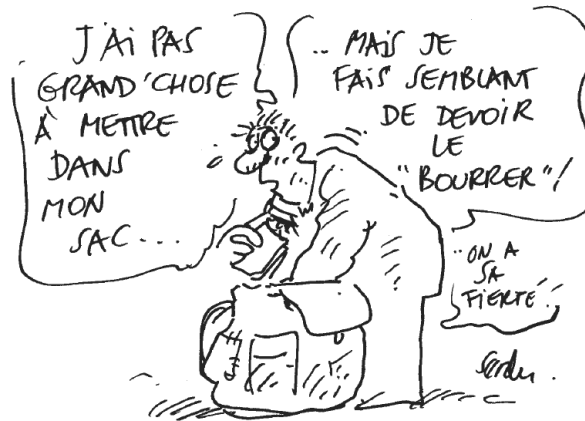 J'AI PAS
GRAND'CHOSE
À METTRE
DANS
MON
SAC...
.. MAIS JE
FAIS SEMBLANT
DE DEVOIR
LE
"BOURRER"!
.. ON A
SA
FIERTÉ!..
Serdu.